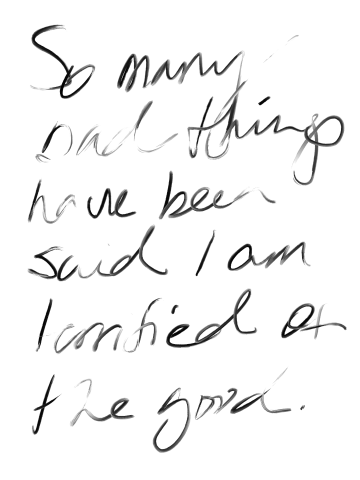 So many
bad things
have been
said I am
terrified of
the good.